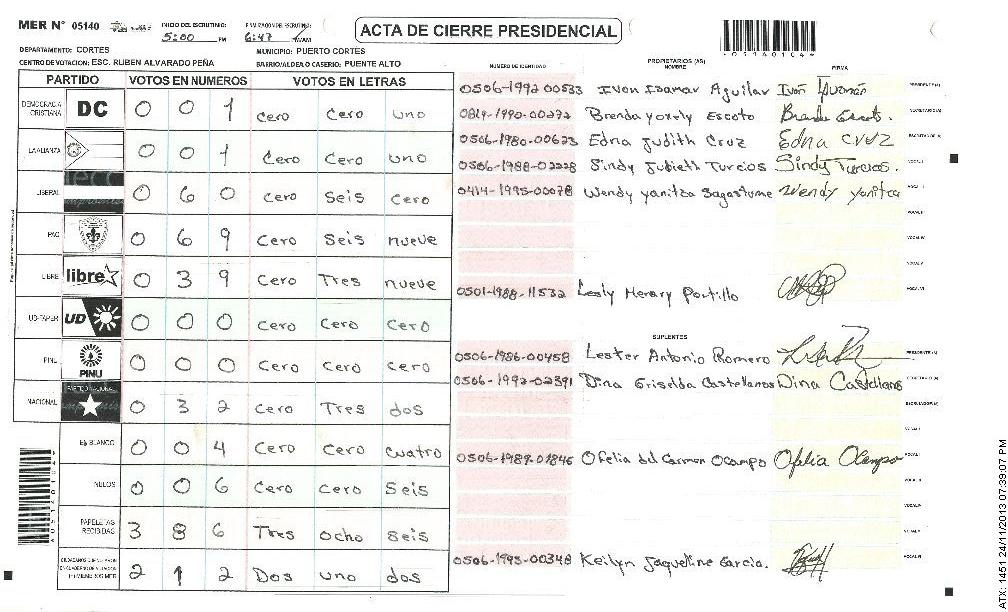 MER N° 05140
INICIO DEL ESCRUTINIO: 5:00 PM
6:47
ACTA DE CIERRE PRESIDENCIAL
DEPARTAMENTO: CORTES
MUNICIPIO: PUERTO CORTES
CENTRO DE VOTACION: ESC. RUBEN ALVARADO PEÑA
BARRIO/ALDEA O CASERIO: PUENTE ALTO
PARTIDO VOTOS EN NUMEROS VOTOS EN LETRAS
DEMOCRACIA CRISTIANA DC 0 0 1 Cero Cero uno
LA ALIANZA 0 0 1 Cero Cero uno
LIBERAL 0 6 0 Cero Seis Cero
PAC 0 6 9 Cero Seis nueve
LIBRE libre 0 3 9 Cero Tres nueve
UD-FAPER UD 0 0 0 Cero Cero Cero
PINU PINU 0 0 0 Cero Cero Cero
NACIONAL 0 3 2 Cero Tres dos
EN BLANCO 0 0 4 Cero Cero cuatro
NULOS 0 0 6 Cero Cero Seis
PAPELETAS RECIBIDAS 3 8 6 Tres ocho seis
2 1 2 Dos uno dos
NUMERO DE IDENTIDAD PROPIETARIOS (AS) NOMBRE FIRMA
0506-1992 00533 Ivon Idamar Aguilar PRESIDENTE (A)
0819-1990-00272 Brenda yoxely Escoto Brenda Escoto. SECRETARIO (A)
0506-1980-00623 Edna Judith Cruz Edna Cruz
0506-1988-02228 Sindy Judieth Turcios Sindy Turcios. VOCAL I
0414-1995-00078 Wendy yanitza Sagastume Wendy yanitza
VOCAL V
0501-1988-11532 Lesly Herary Portillo VOCAL VI
SUPLENTES
0506-1986-00458 Lester Antonio Romero PRESIDENTE (A)
0506-1992-02391 Dina Griselda Castellanos Dina Castellanos SECRETARIO (A)
ESCRUTADOR (A)
0506-1989-01846 Ofelia del Carmen Ocampo Ofelia Ocampo
0506-1995-00348 Keilyn Jaqueline Garcia.
ATX: 1451 24/11/2013 07:39:07 PM